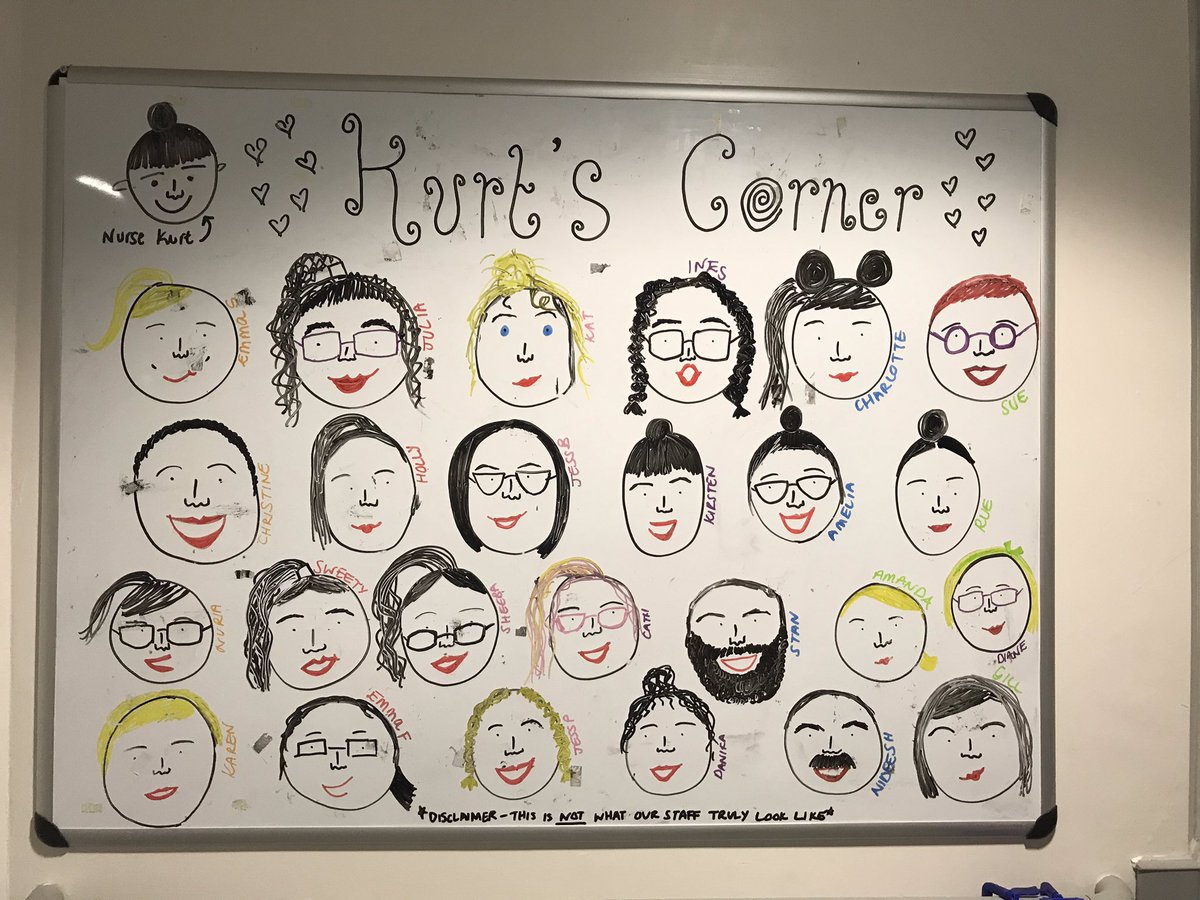 Kurt's Corner
Nurse Kurt
EMMA S
JULIA
KAT
INES
CHARLOTTE
SUE
CHRISTINE
HOLLY
JESS B
KIRSTEN
AMELIA
RUE
NURIA
SWEETY
SHEEBA
CATH
STAN
AMANDA
DIANE
KAREN
EMMA F
JESS P
DANIKA
NIDEESH
GILL
*DISCLAIMER - THIS IS NOT WHAT OUR STAFF TRULY LOOK LIKE*